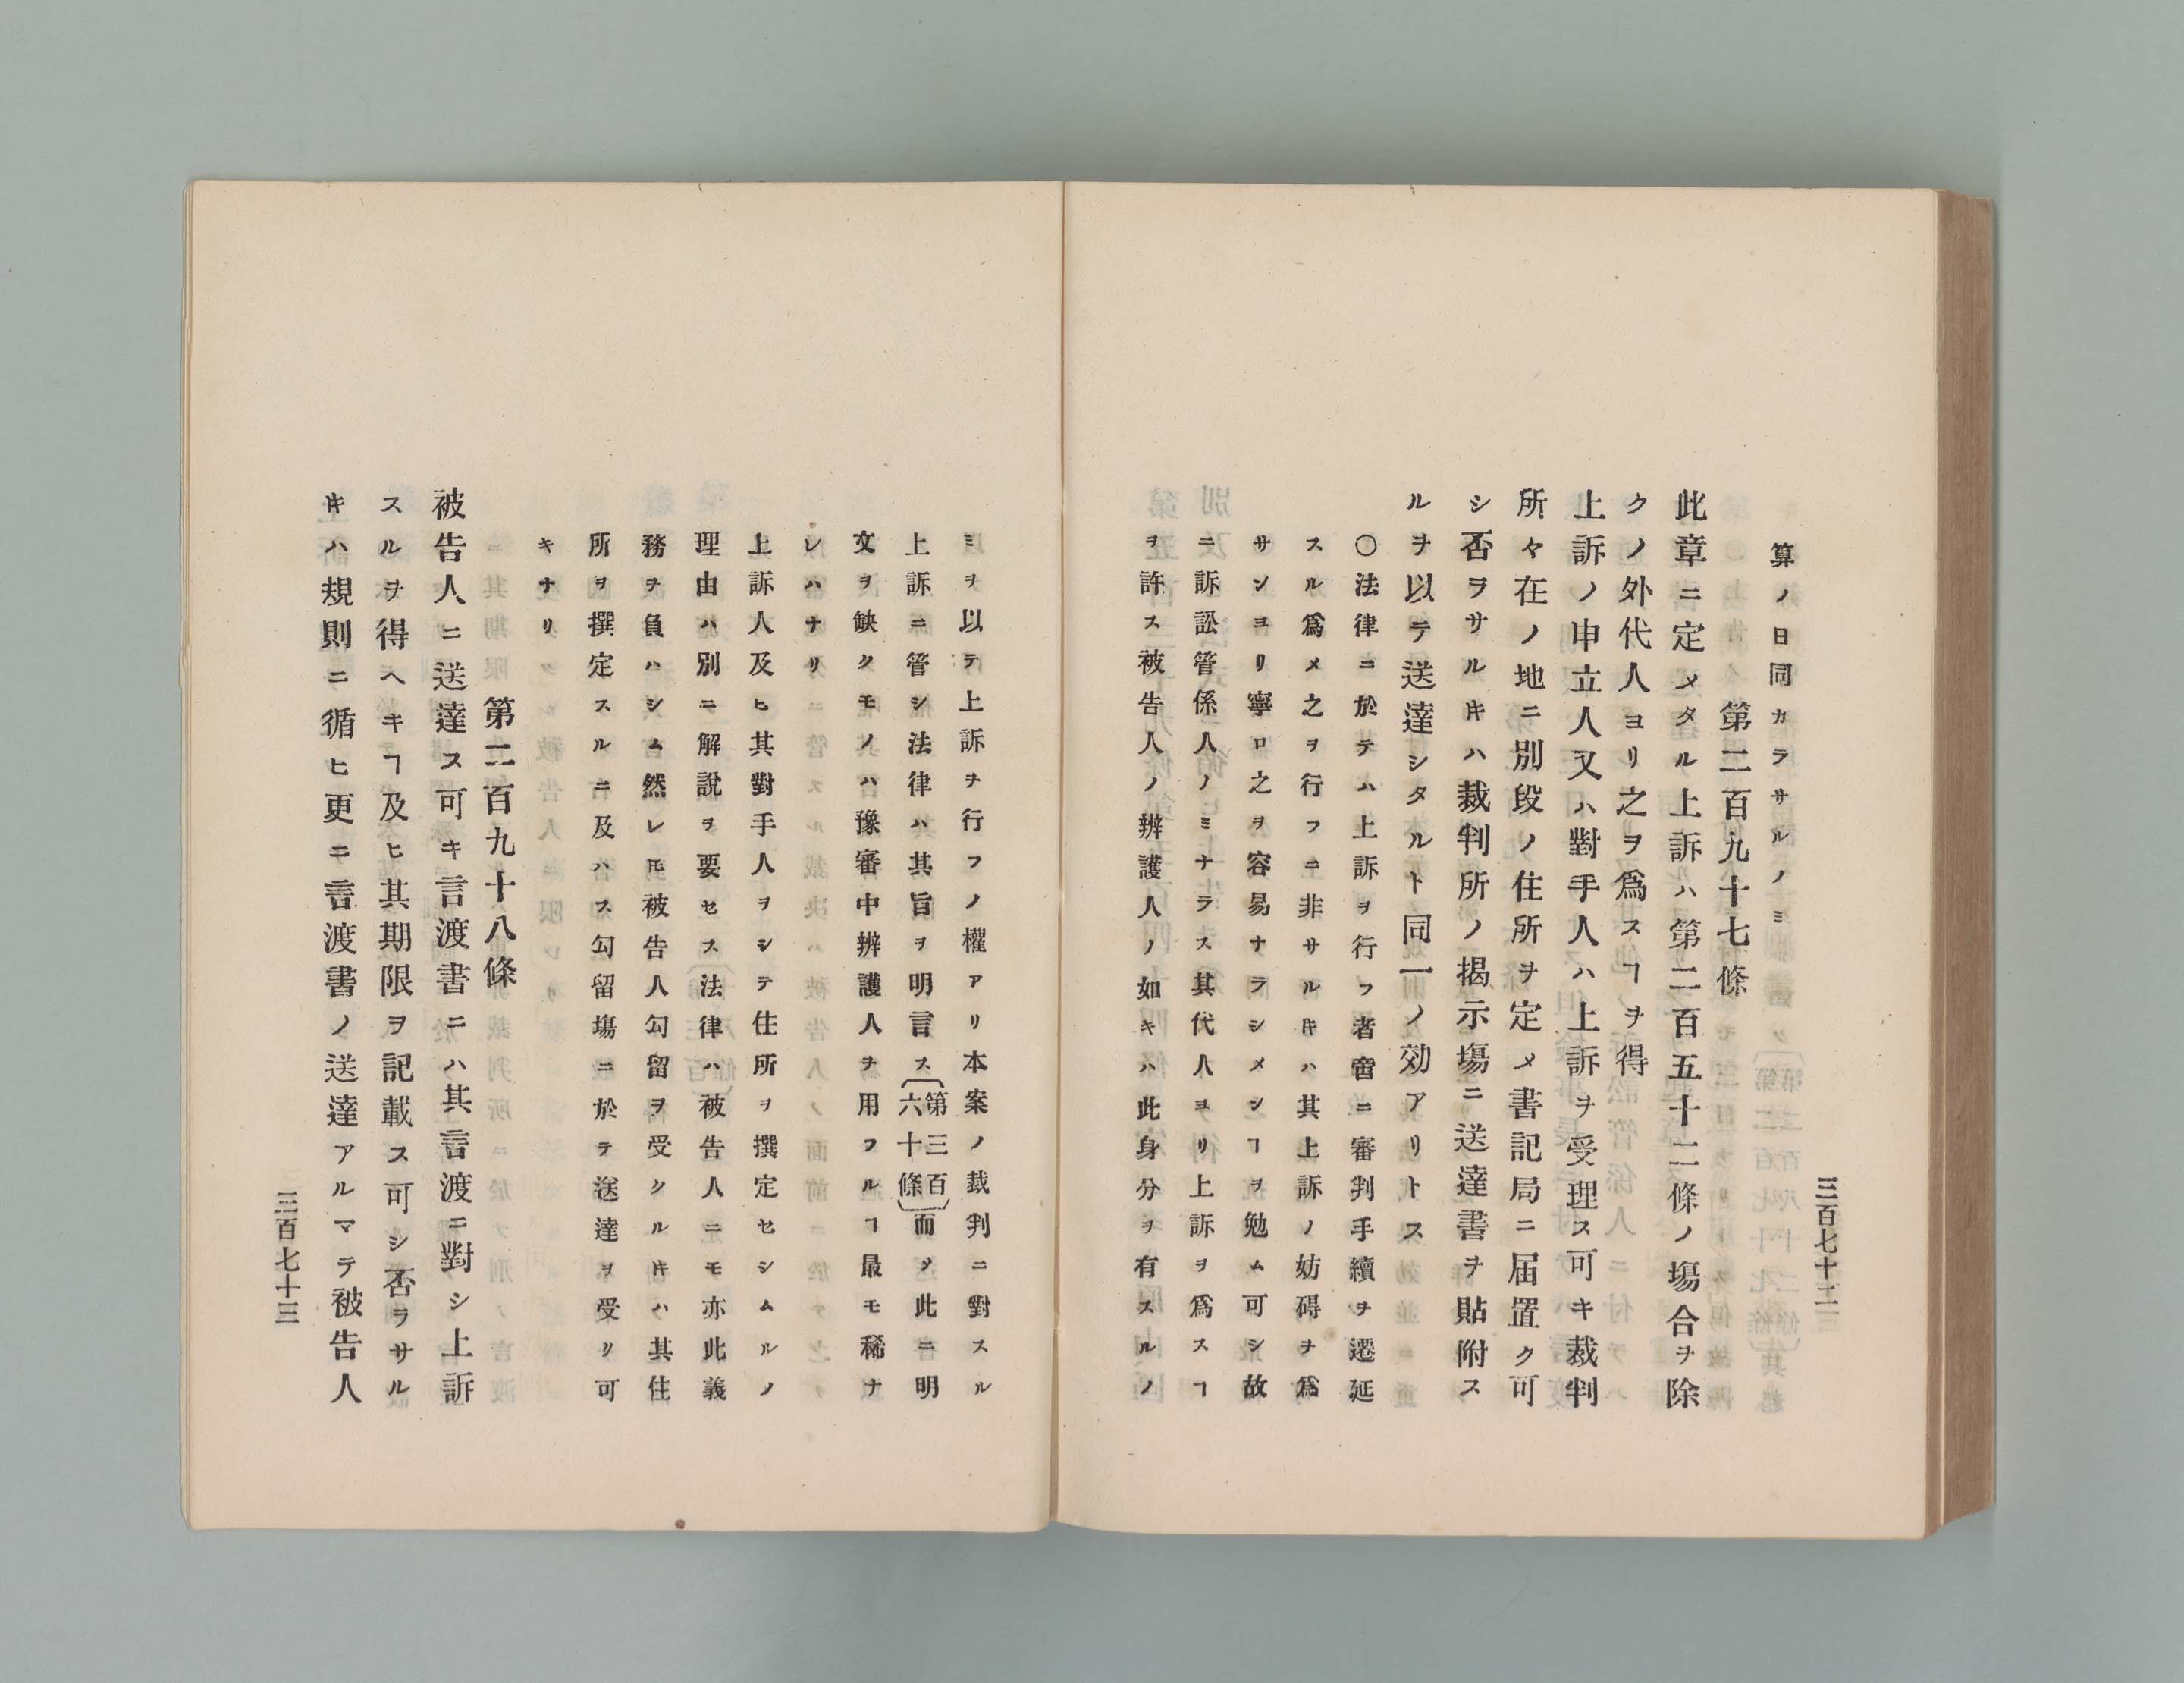 三百七十二
算ノ日同カラサルノミ
第二百九十七條
此章ニ定メタル上訴ハ第二百五十二條ノ塲合ヲ除
クノ外代人ヨリ之ヲ爲スヿヲ得
上訴ノ申立人又ハ對手人ハ上訴ヲ受理ス可キ裁判
所々在ノ地ニ別段ノ住所ヲ定メ書記局ニ届置ク可
シ否ラサルキハ裁判所ノ揭示塲ニ送達書ヲ貼附ス
ルヲ以テ送達シタルト同一ノ効アリトス
〇法律ニ於テハ上訴ヲ行フ者啻ニ審判手續ヲ遷延
スル爲メ之ヲ行フニ非サルキハ其上訴ノ妨碍ヲ爲
サンヨリ寧ロ之ヲ容易ナラシメンヿヲ勉ム可シ故
ニ訴訟管係人ノミナラス其代人ヨリ上訴ヲ爲スヿ
ヲ許ス被告人ノ辨護人ノ如キハ此身分ヲ有スルノ
ミヲ以テ上訴ヲ行フノ權アリ本案ノ裁判ニ對スル
上訴ニ管シ法律ハ其旨ヲ明言ス〔第三百六十條〕而メ此ニ明
文ヲ缺クモノハ豫審中辨護人ヲ用フルヿ最モ稀ナ
レハナリ
上訴人及ヒ其對手人ヲシテ住所ヲ撰定セシムルノ
理由ハ別ニ解說ヲ要セス法律ハ被告人ニモ亦此義
務ヲ負ハシム然レ𪜈被告人勾留ヲ受クルキハ其住
所ヲ撰定スルニ及ハス勾留塲ニ於テ送達ヲ受ク可
キナリ
第二百九十八條
被告人ニ送達ス可キ言渡書ニハ其言渡ニ對シ上訴
スルヲ得ヘキヿ及ヒ其期限ヲ記載ス可シ否ラサル
キハ規則ニ循ヒ更ニ言渡書ノ送達アルマテ被告人
三百七十三